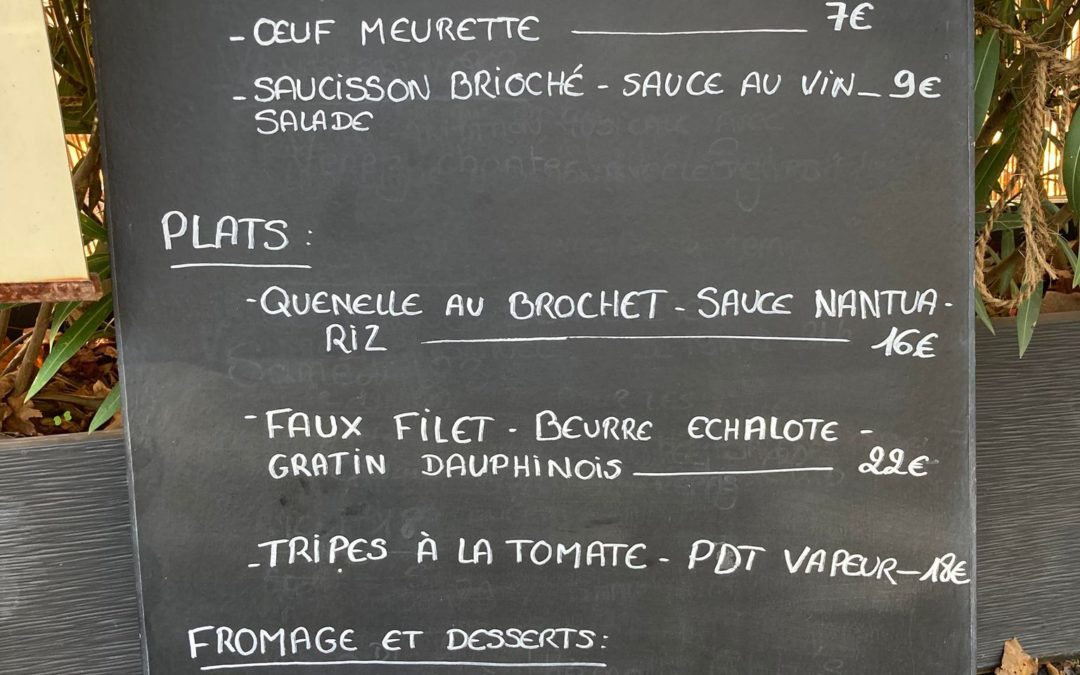 - ŒUF MEURETTE 7€
- SAUCISSON BRIOCHÉ - SAUCE AU VIN 9€
SALADE
PLATS :
- QUENELLE AU BROCHET - SAUCE NANTUA -
RIZ 16€
- FAUX FILET - BEURRE ECHALOTE -
GRATIN DAUPHINOIS 22€
- TRIPES À LA TOMATE - PDT VAPEUR 18€
FROMAGE ET DESSERTS :